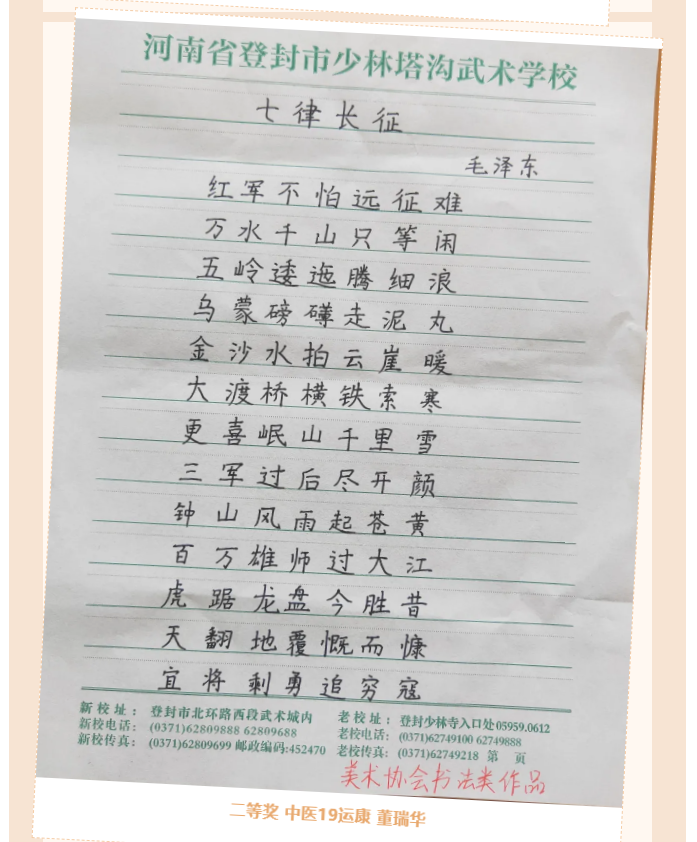 河南省登封市少林塔沟武术学校
七律长征
毛泽东
红军不怕远征难
万水千山只等闲
五岭逶迤腾细浪
乌蒙磅礴走泥丸
金沙水拍云崖暖
大渡桥横铁索寒
更喜岷山千里雪
三军过后尽开颜
钟山风雨起苍黄
百万雄师过大江
虎踞龙盘今胜昔
天翻地覆慨而慷
宜将剩勇追穷寇
新校址：登封市北环路西段武术城内 老校址：登封少林寺入口处05959.0612
新校电话：(0371)62809888 62809688 老校电话：(0371)62749100 62749888
新校传真：(0371)62809699 邮政编码:452470 老校传真：(0371)62749218 第 页
美术协会书法类作品
二等奖 中医19运康 董瑞华